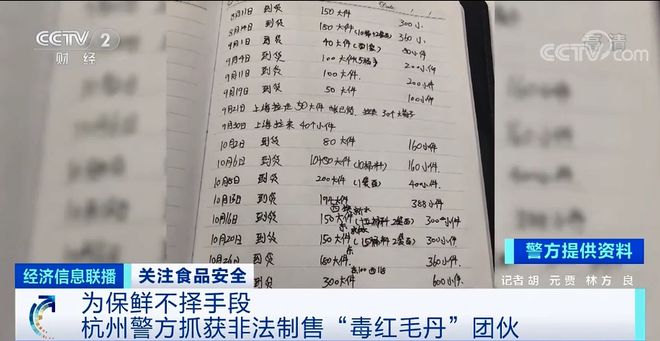 CCTV 2
财经
高清
CCTV.com
8月11日 到货 150大件 300小
8月19日 到货 180大件 360小
9月1日 到货 40大件
9月9日 到货 100大件 200小件
9月11日 到货 100大件 200小件
9月19日 到货 50大件 100小件
9月21日 上海拉走 50大件
9月30日 上海拉来 40个小件
10月2日 到货 80大件 160小件
10月6日 到货 160小件
10月8日 到货 200大件 400小件
10月13日 到货 194大件 388小件
10月16日 到货 150大件 300小件
10月20日 到货 150大件 300小件
10月24日 到货 180大件 360小件
到货 300大件 600小件
警方提供资料
经济信息联播 关注食品安全
记者 胡 元 贾 林 方 良
为保鲜不择手段
杭州警方抓获非法制售“毒红毛丹”团伙